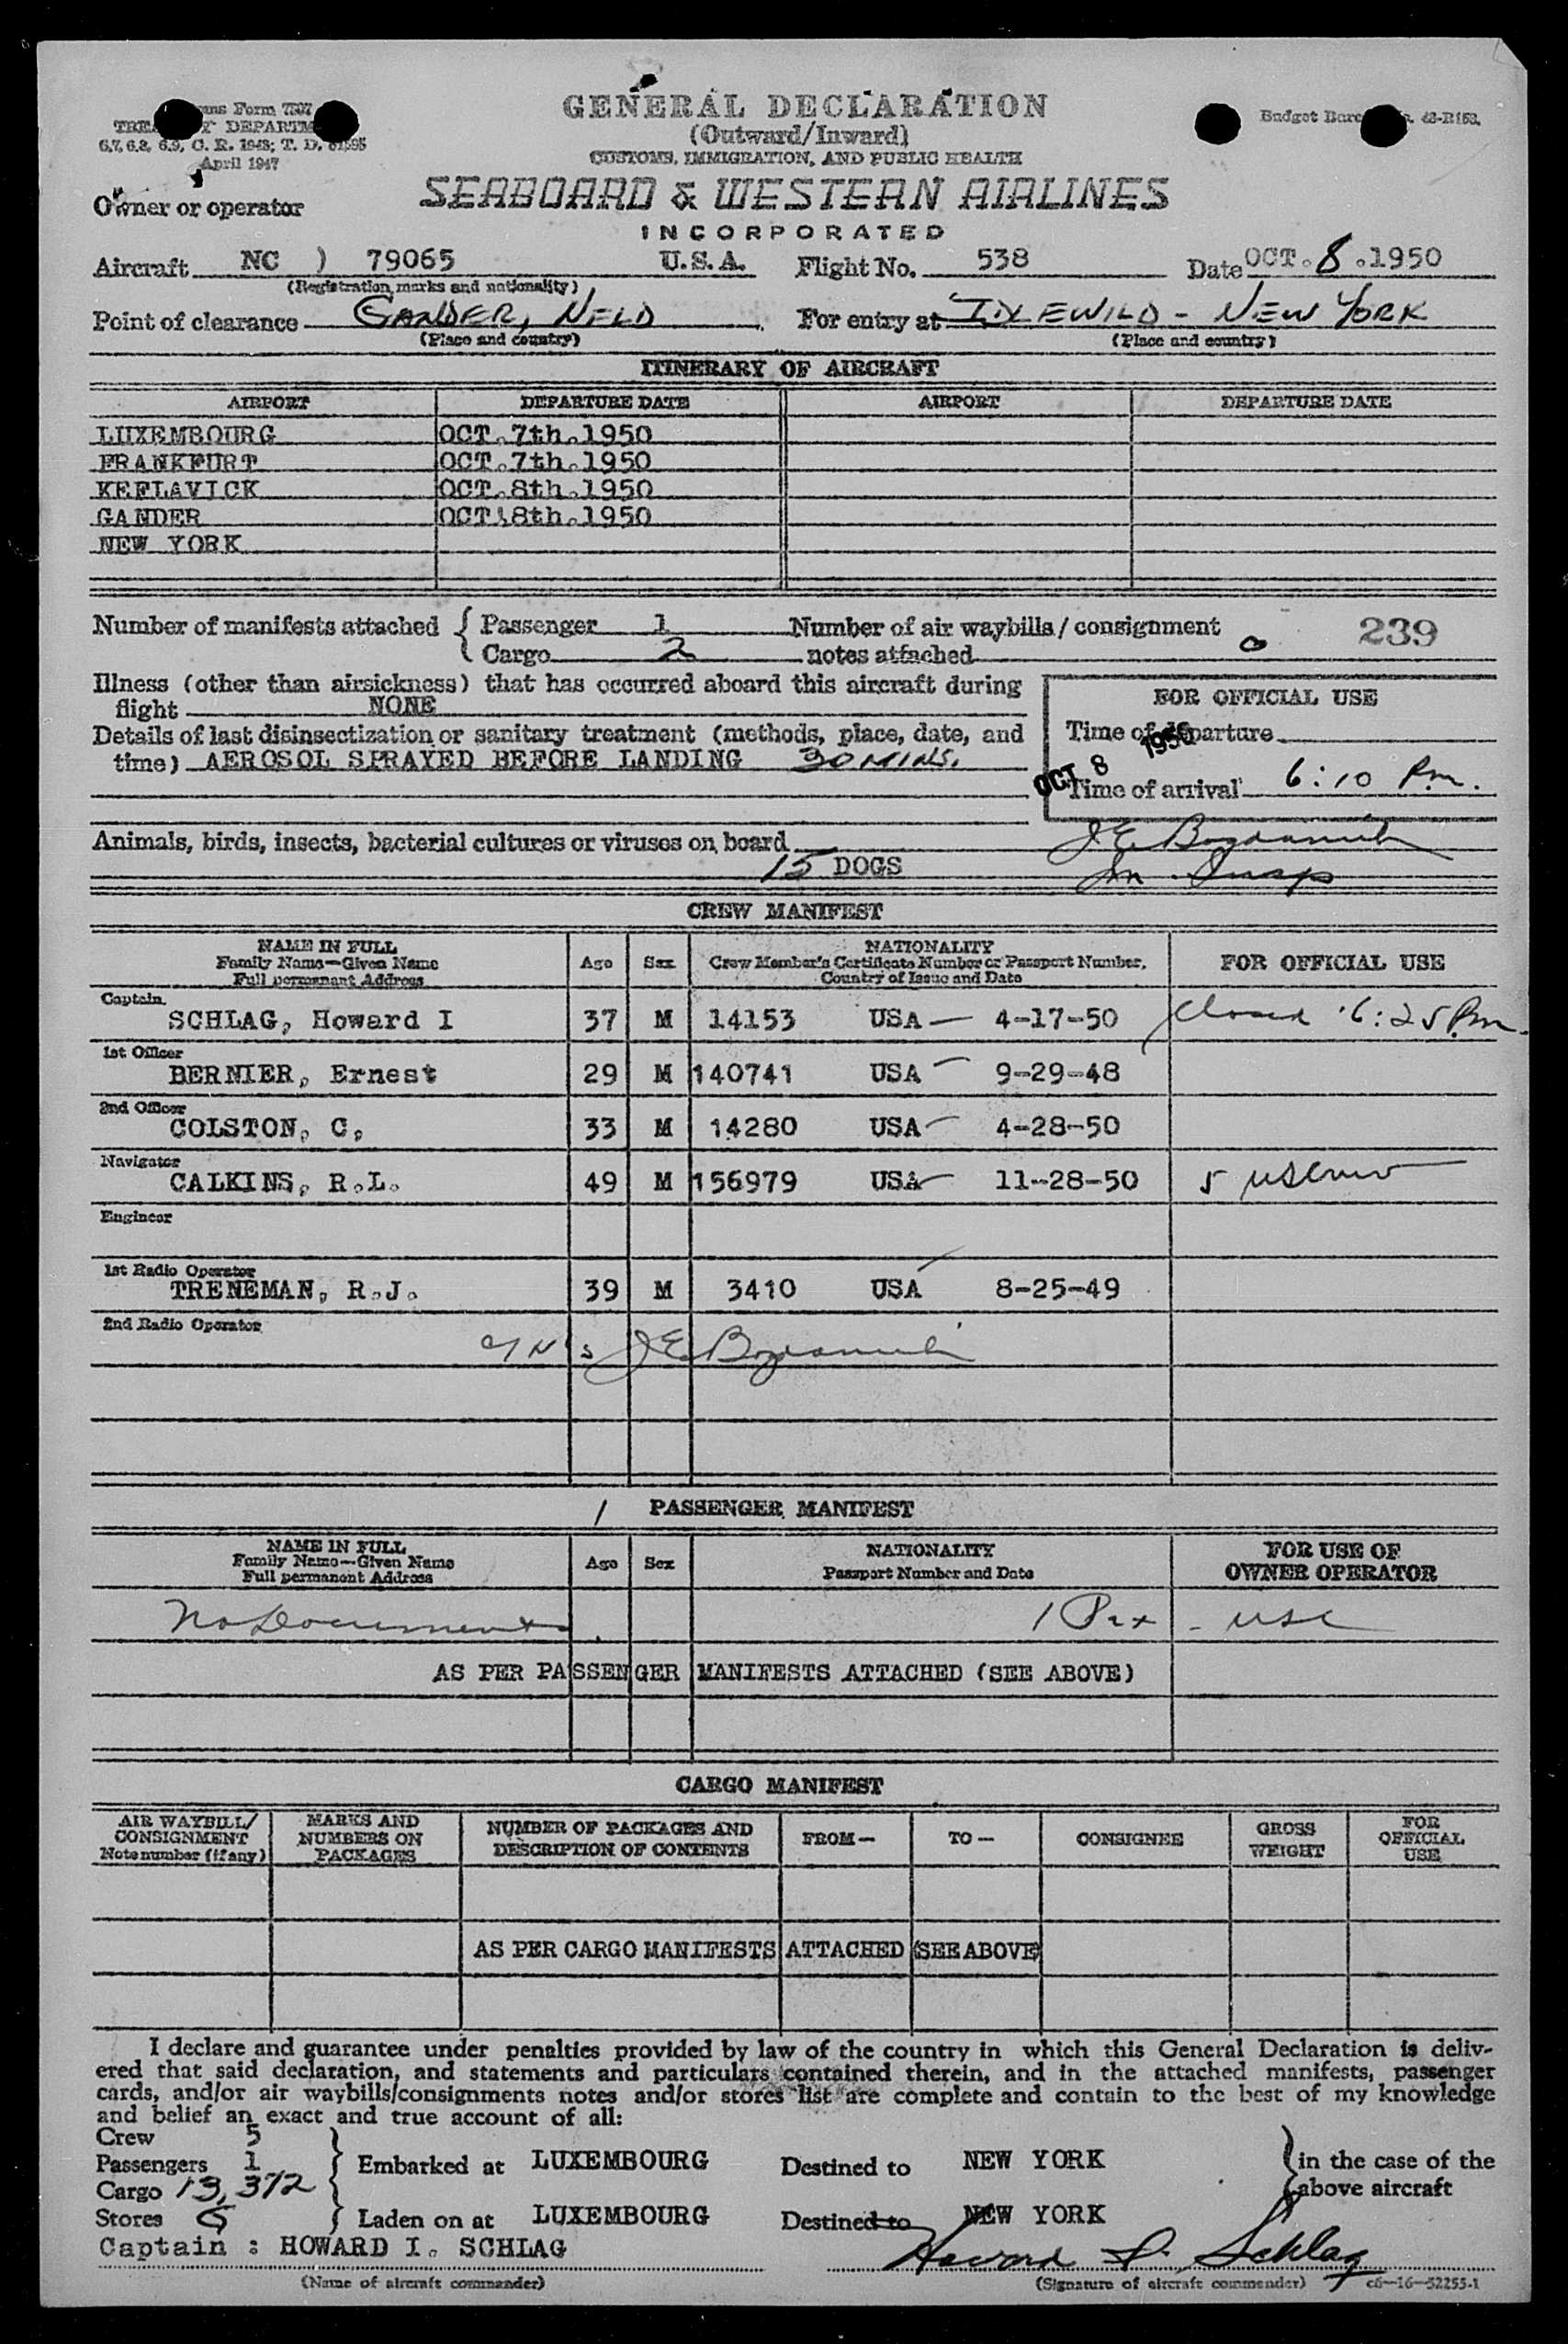 GENERAL DECLARATION
(Outward/Inward)
CUSTOMS, IMMIGRATION, AND PUBLIC HEALTH
Form 7507
DEPARTM
6.7, 6.8, 6.9, C. R. 1943; T. D.
April 1947
Budget 43-R158.
Owner or operator
SEABOARD & WESTERN AIRLINES
INCORPORATED
Aircraft NC ) 79065 U.S.A. Flight No. 538 Date OCT. 8 .1950
(Registration marks and nationality)
Point of clearance GANDER, NFLD For entry at IDLEWILD - NEW YORK
(Place and country) (Place and country)
ITINERARY OF AIRCRAFT
AIRPORT DEPARTURE DATE AIRPORT DEPARTURE DATE
LUXEMBOURG OCT.7th.1950
FRANKFURT OCT.7th.1950
KEFLAVICK OCT.8th.1950
GANDER OCT.8th.1950
NEW YORK
Number of manifests attached { Passenger 1 Number of air waybills / consignment
Cargo 2 notes attached 0 239
Illness (other than airsickness) that has occurred aboard this aircraft during
flight NONE
Details of last disinsectization or sanitary treatment (methods, place, date, and
time) AEROSOL SPRAYED BEFORE LANDING 30 MINS.
FOR OFFICIAL USE
Time of departure
OCT 8 1950
Time of arrival 6:10 P.m.
Animals, birds, insects, bacterial cultures or viruses on board
15 DOGS
Im. Insp
CREW MANIFEST
NAME IN FULL
Family Name—Given Name
Full permanent Address
Age Sex
NATIONALITY
Crew Member's Certificate Number or Passport Number,
Country of Issue and Date
FOR OFFICIAL USE
Captain
SCHLAG, Howard I 37 M 14153 USA 4-17-50 Closed 6:25 P.m.
1st Officer
BERNIER, Ernest 29 M 140741 USA 9-29-48
2nd Officer
COLSTON, C, 33 M 14280 USA 4-28-50
Navigator
CALKINS, R.L. 49 M 156979 USA 11-28-50 5
Engineer
1st Radio Operator
TRENEMAN, R.J. 39 M 3410 USA 8-25-49
2nd Radio Operator
1 PASSENGER MANIFEST
NAME IN FULL
Family Name—Given Name
Full permanent Address
Age Sex
NATIONALITY
Passport Number and Date
FOR USE OF
OWNER OPERATOR
No Documents 1 Pax - USC
AS PER PASSENGER MANIFESTS ATTACHED (SEE ABOVE)
CARGO MANIFEST
AIR WAYBILL/
CONSIGNMENT
Note number (if any)
MARKS AND
NUMBERS ON
PACKAGES
NUMBER OF PACKAGES AND
DESCRIPTION OF CONTENTS
FROM— TO— CONSIGNEE
GROSS
WEIGHT
FOR
OFFICIAL
USE
AS PER CARGO MANIFESTS ATTACHED (SEE ABOVE)
I declare and guarantee under penalties provided by law of the country in which this General Declaration is deliv-
ered that said declaration, and statements and particulars contained therein, and in the attached manifests, passenger
cards, and/or air waybills/consignments notes and/or stores list are complete and contain to the best of my knowledge
and belief an exact and true account of all:
Crew 5
Passengers 1 Embarked at LUXEMBOURG Destined to NEW YORK in the case of the
Cargo 13,372 above aircraft
Stores Laden on at LUXEMBOURG Destined to NEW YORK
Captain : HOWARD I. SCHLAG Howard I. Schlag
(Name of aircraft commander) (Signature of aircraft commander) c6—16—52255-1